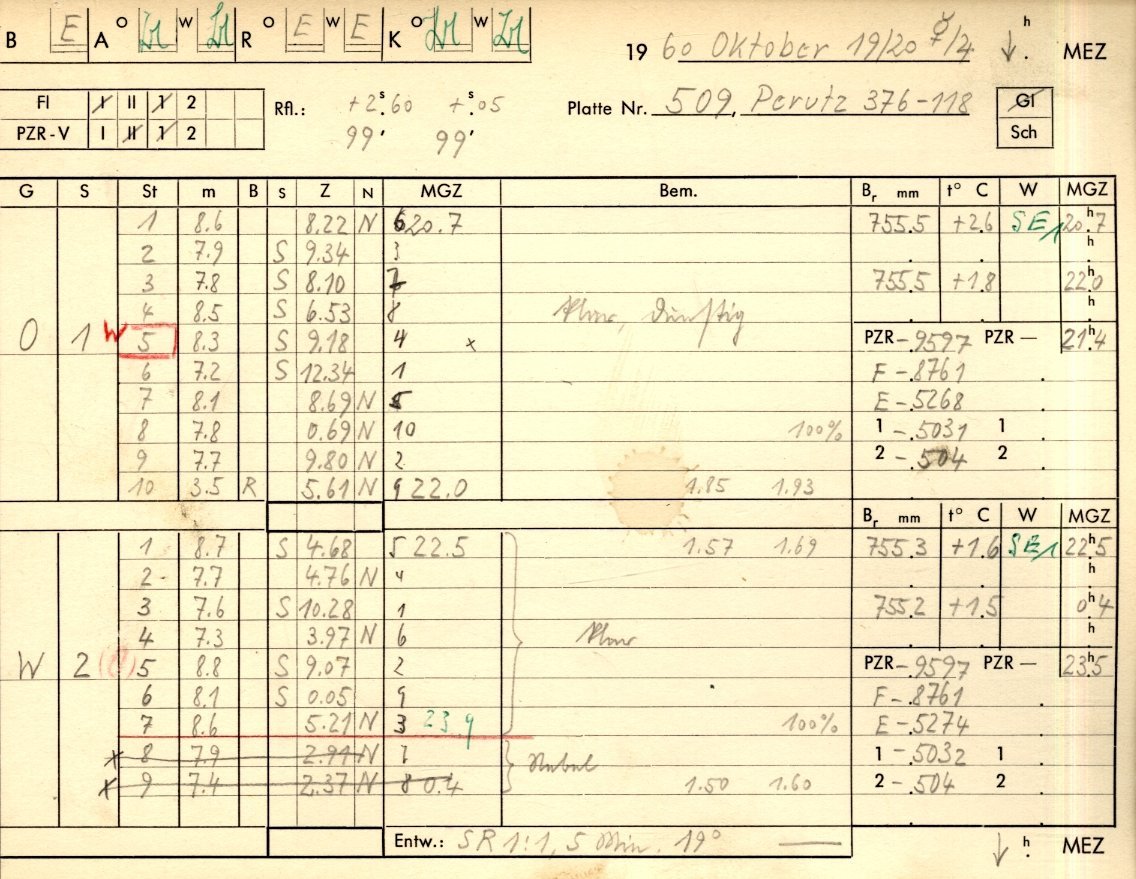 B E A O W R O E W E K O W 19 60 Oktober 19/20 /4 h . MEZ
Fl I II 1 2 Rfl.: +2ˢ.60 +ˢ.05 Platte Nr. 509, Perutz 376-118 Gl
PZR-V I II 1 2 99' 99' Sch
G S St m B S Z N MGZ Bem. Bᵣ mm t° C W MGZ
1 8.6 8.22 N 6 20.7 755.5 +2.6 SE1 20ʰ.7
2 7.9 S 9.34 3 . . h
3 7.8 S 8.10 7 755.5 +1.8 22ʰ.0
4 8.5 S 6.53 8 klar, dunstig . . h
O 1 W 5 8.3 S 9.18 4 x PZR-.9597 PZR — 21ʰ.4
6 7.2 S 12.34 1 F-.8761 .
7 8.1 8.69 N 5 E-.5268 .
8 7.8 0.69 N 10 100% 1 -.5031 1
9 7.7 9.80 N 2 2 -.504 2
10 3.5 R 5.61 N 9 22.0 1.85 1.93
Bᵣ mm t° C W MGZ
1 8.7 S 4.68 5 22.5 1.57 1.69 755.3 +1.6 SE1 22ʰ.5
2 7.7 4.76 N 4 . . h
3 7.6 S 10.28 1 755.2 +1.5 0ʰ.4
4 7.3 3.97 N 6 klar . . h
W 2 5 8.8 S 9.07 2 PZR-.9597 PZR — 23ʰ.5
6 8.1 S 0.05 9 F-.8761 .
7 8.6 5.21 N 3 23.9 100% E-.5274 .
x 8 7.9 2.91 N 7 Nebel 1 -.5032 1
x 9 7.4 2.37 N 8 0.4 1.50 1.60 2 -.504 2
Entw.: SR 1:1, 5 Min. 19° — h . MEZ